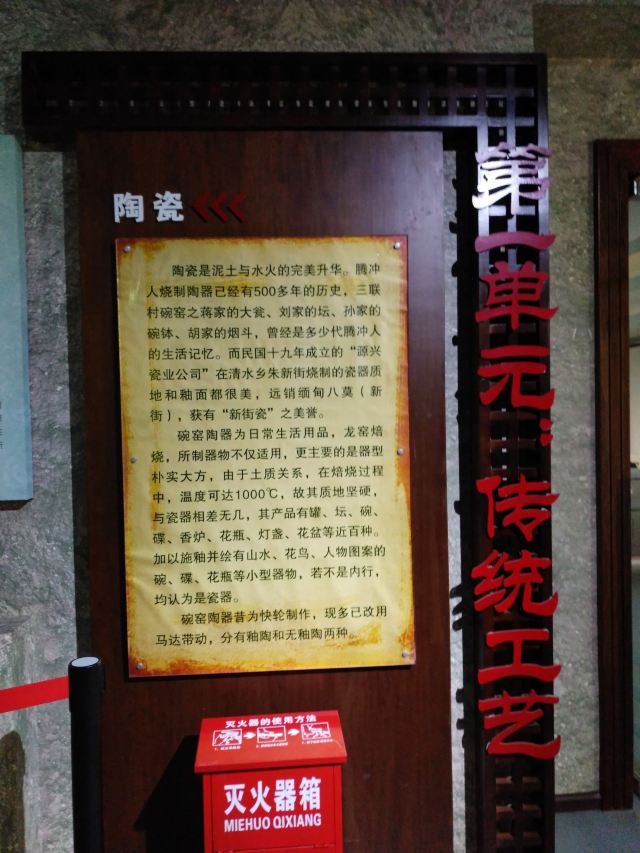 陶瓷
陶瓷是泥土与水火的完美升华。腾冲
人烧制陶器已经有500多年的历史，三联
村碗窑之蒋家的大瓮、刘家的坛、孙家的
碗钵、胡家的烟斗，曾经是多少代腾冲人
的生活记忆。而民国十九年成立的“源兴
瓷业公司”在清水乡朱新街烧制的瓷器质
地和釉面都很美，远销缅甸八莫（新
街），获有“新街瓷”之美誉。
碗窑陶器为日常生活用品，龙窑焙
烧，所制器物不仅适用，更主要的是器型
朴实大方，由于土质关系，在焙烧过程
中，温度可达1000℃，故其质地坚硬，
与瓷器相差无几，其产品有罐、坛、碗、
碟、香炉、花瓶、灯盏、花盆等近百种。
加以施釉并绘有山水、花鸟、人物图案的
碗、碟、花瓶等小型器物，若不是内行，
均认为是瓷器。
碗窑陶器昔为快轮制作，现多已改用
马达带动，分有釉陶和无釉陶两种。
第一单元：传统工艺
灭火器的使用方法
灭火器箱
MIEHUO QIXIANG